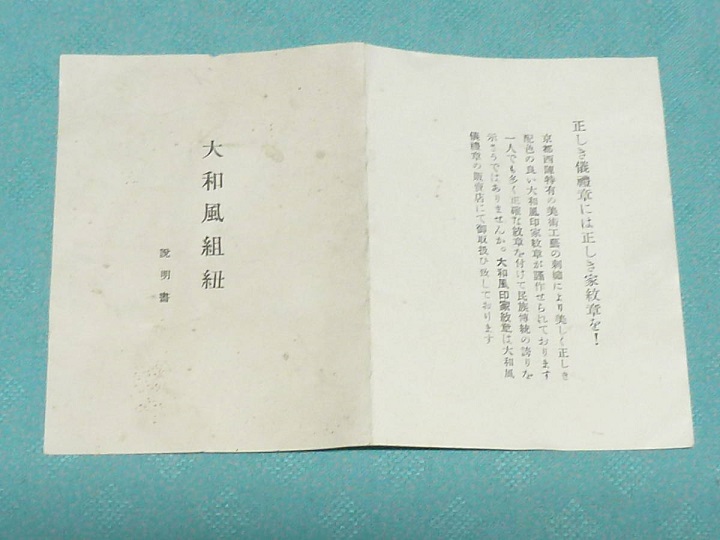 正しき儀禮章には正しき家紋章を!
京都西陣特有の美術工藝の刺繡により美しく正しき
配色の良い大和風印家紋章が謹作せられております
一人でも多く正確な紋章を付けて民族傳統の誇りを
示さうではありませんか。大和風印家紋章は大和風
儀禮章の販賣店にて御取扱ひ致しております
大和風組紐
說明書